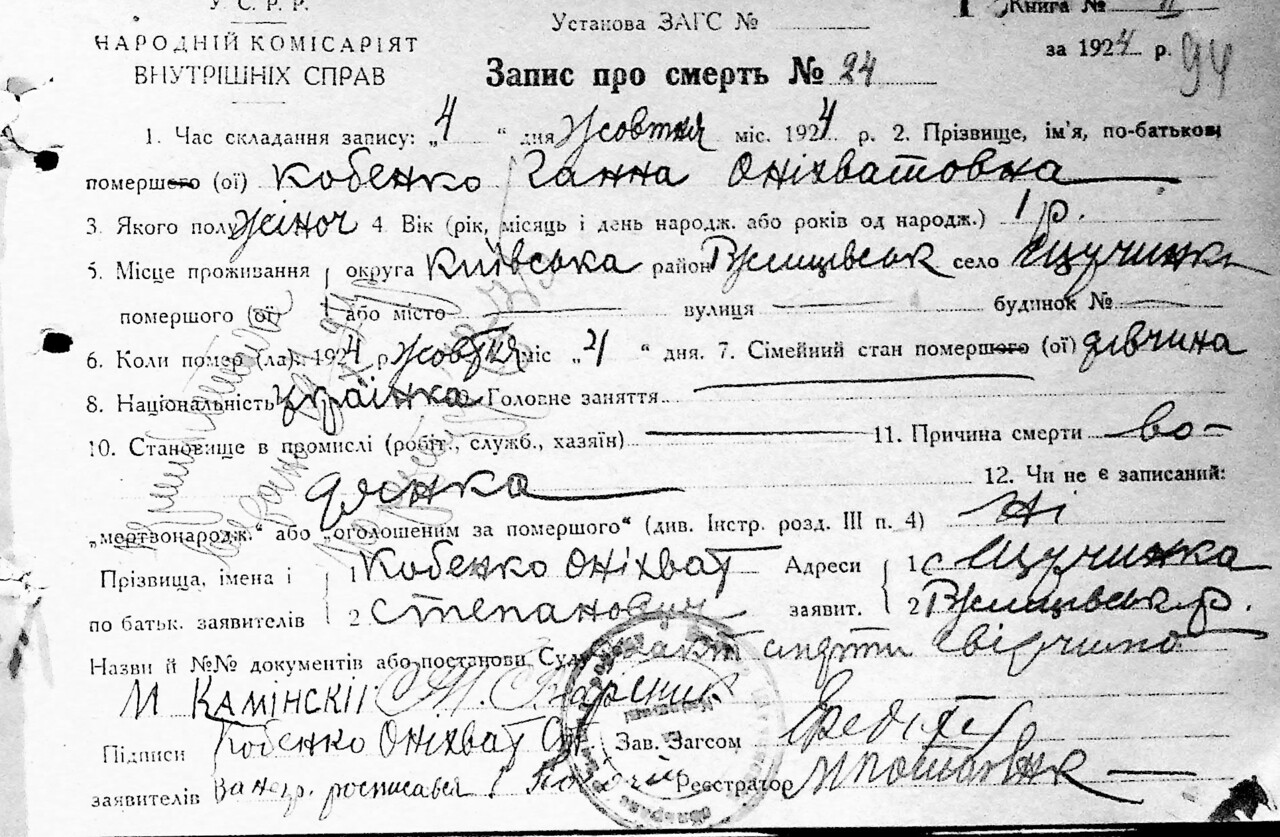 У.С.Р.Р.
НАРОДНІЙ КОМІСАРІЯТ
ВНУТРІШНІХ СПРАВ
Установа ЗАГС №
Книга № II
за 1924 р. 94
Запис про смерть № 24
1. Час складання запису: „4“ дня Жовтня міс. 1924 р. 2. Прізвище, ім'я, по-батькові
помершого (ої) Кобенко Ганна Оніхватовна
3. Якого полу Жіноч 4. Вік (рік, місяць і день народж. або років од народж.) 1 р.
5. Місце проживання округа Київська район Ржищівськ село Щучинка
помершого (ої) або місто вулиця будинок №
6. Коли помер (ла): 1924 р. Жовтня міс „2“ дня. 7. Сімейний стан помершого (ої) дівчина
8. Національність українка Головне заняття
10. Становище в промислі (робіт., служб., хазяїн) 11. Причина смерти во-
дянка 12. Чи не є записаний:
„мертвонародж.“ або „оголошеним за помершого“ (див. Інстр. розд. III п. 4) Ні
Прізвища, імена і 1 Кобенко Оніхват Адреси 1 с Щучинка
по батьк. заявителів 2 Степанович заявит. 2 Ржищівськ р.
Назви й №№ документів або постанови Суду акт смерти свідчимо
М Камінскіі
Підписи Кобенко Оніхват Ст Зав. Загсом
заявителів За негр. росписався Реєстратор